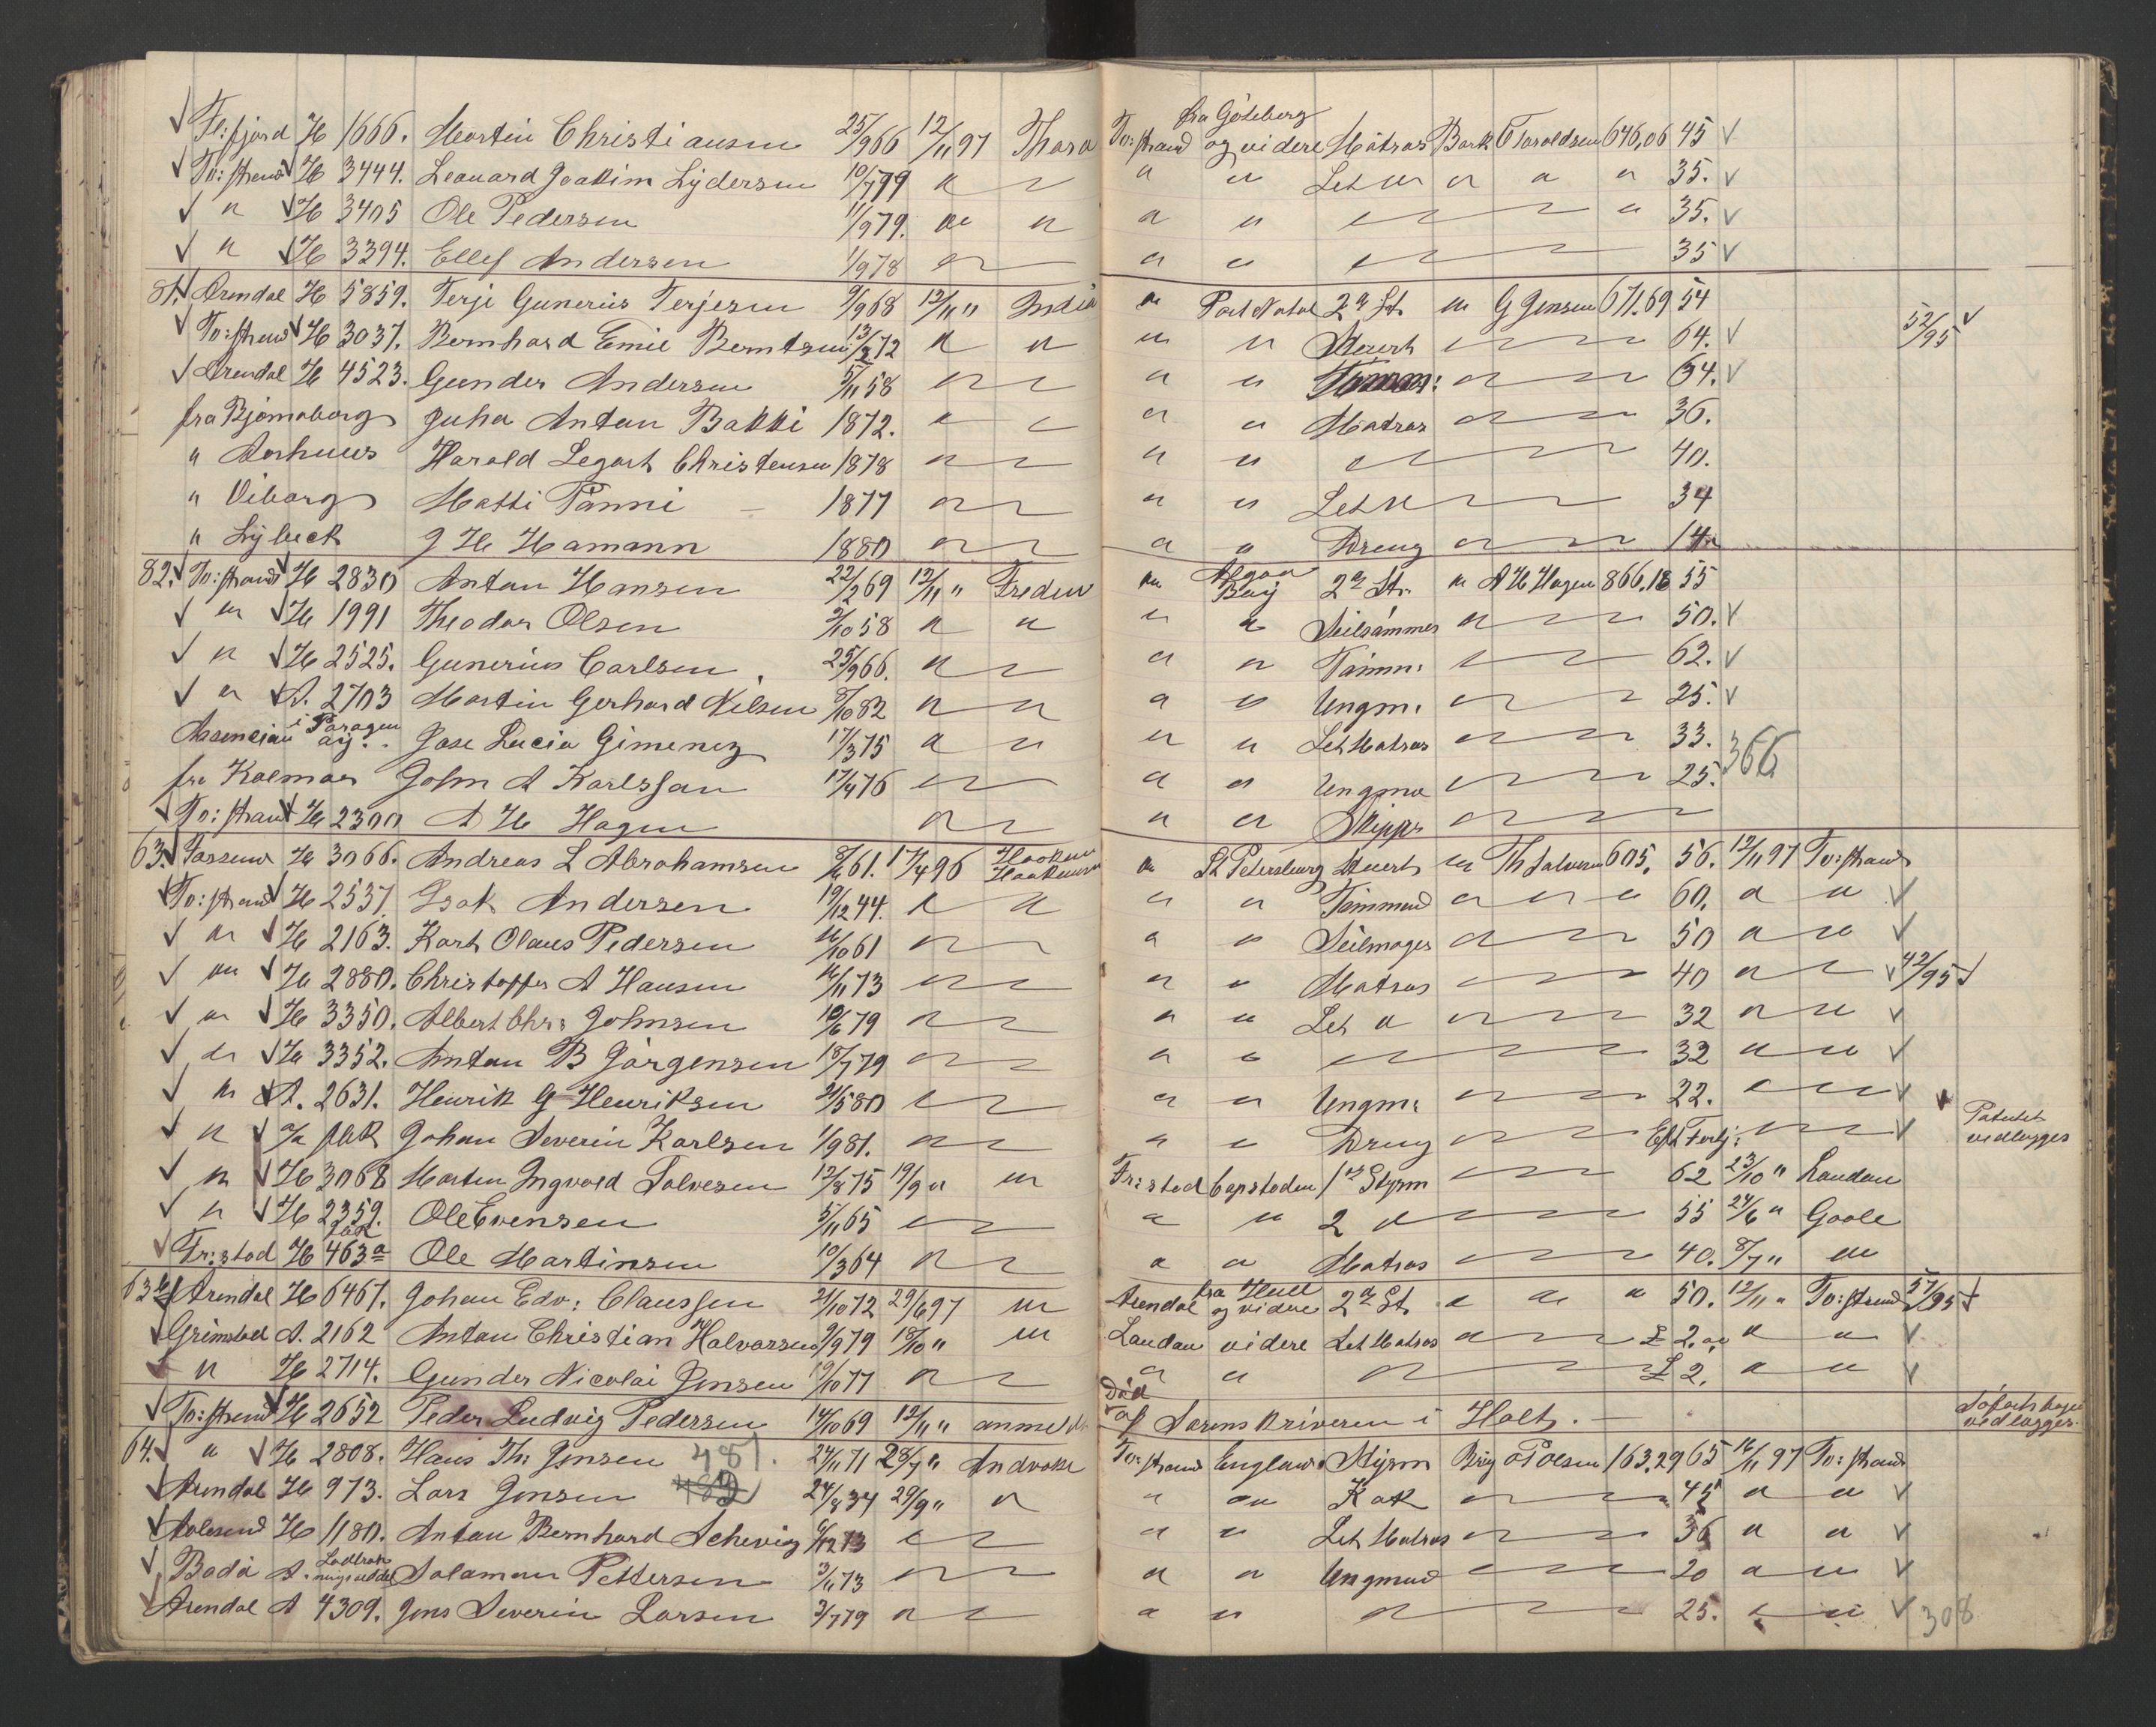 Fl:fjord H 1666. Martin Christiansen 25/9 66 12/11 97 Thora To:strand fra Göteborg og videre Matros Bark O Taraldsen 676,06 45
To:strand H 3444. Leonard Joakim Lydersen 10/7 79 " " " " Let M " " " 35.
" H 3405 Ole Pedersen 11/9 79. " " " " " 35.
" H 3394. Ellef Andersen 1/9 78 " " " 35
81. Arendal H 5859. Terje Gunerius Terjesen 9/9 68 12/11 " India " Port Natal 2n St. " G Jensen 671.69 54
To:strand H 3037. Bernhard Emil Berntsen 13/2 72 " " " " Stuert " 64. 52/95
Arendal H 4523. Gunder Andersen 5/11 58 " " " Tømm: " 64.
fra Bjørneborg Juha Antan Bakki 1872. " " " " Matros " 36.
" Aarhuus Harald Legart Christensen 1878 " " " " 40.
" Viborg Matti Panni 1877 " " " Let M 34
" Lybeck J H Hamann 1880 " " " Dreng " 14
82. To:strand H 2830 Antan Hansen 22/2 69 12/11 " Freden " Algoa Bay 2n St. " A H Hagen 866.18 55
" H 1991 Theodor Olsen 2/10 58 " " " " Seilsømmer " 50.
" H 2525. Gunerius Carlsen 25/9 66. " " " Tømm: 62.
" A. 2703 Martin Gerhard Nilsen 8/10 82 " " " " Ungm. " 25.
Assencian i Paragu ay. Jose Lucia Gimenez 17/3 75 " " " " Let Matros " 33.
fra Kalmar John A Karlsson 17/4 76 " " " Ungma " 25. 366
To:strand H 2300 A H Hagen " " " Skipper "
63. Farsund H 3066. Andreas L Abrahamsen 8/6 61. 17/4 96 Haakon Haakonsen " St Petersburg Stuert " Th Salvesen 605. 56. 12/11 97 To:strand
To:strand H 2537. Isak Andersen 19/12 44. " " " " Tømmmd " " " 60. " "
" H 2163. Karl Olaus Pedersen 16/10 61 " " " Seilmager " 50 " "
" H 2880. Christoffer A Hansen 16/11 73 " " " Matros 40 " " 42/95
" H 3350. Albert Chr: Johnsen 10/6 79 " " " Let " " 32 " "
" H 3352. Antan B Jörgensen 18/7 79 " " " " 32 " "
" A. 2631. Henrik G Henriksen 21/5 80 " " " Ungm: 22. " "
" Johan Severin Karlsen 1/9 81. " " " Dreng " Eft Fortj: " " Patentet vedlægges
" H 3068 Martin Ingvald Salvesen 12/8 75 19/9 " " Fr:stad Capstaden 1st Styrm " 62 23/10 " Landan
" H 2359. Ole Evensen 5/11 65 " " " 2 " " 55 24/6 " Goole
Fr:stad H 463a Ole Martinsen 10/3 64 " " " Matros " 40. 8/7 " "
63 b Arendal H 6467. Johan Edv: Claussen 21/10 72 29/6 97 " Arendal fra Hull og videre 2n St. " " " 50. 12/11 " To:strand 57/95
Grimstad A. 2162 Antan Christian Halvorsen 9/9 79 18/10 " " Landan videre Let Matros " £ 2.00 " "
" H 2714. Gunder Nicolai Jensen 19/10 77 " " " " £ 2. " "
To:strand H 2652 Peder Ludvig Pedersen 14/10 69 12/11 " anmeldt Död af Sorenskriveren i Holt.
64. " H 2808. Hans Th: Jensen 481. 24/11 71 28/7 " Andvake To:strand England Styrm Brig O Polsen 163.29 65 16/11 97 To:strand
Arendal H 973. Lars Jensen 24/8 34 29/9 " " " " Kok " 45 " "
Aalesund H 1180. Antan Bernhard Schevig 6/12 73 " " " Let Matros " 36 " "
Bodø A. Ladtrak nings Salamon Pettersen 3/11 73 " " " Ungmnd 20 " "
Arendal A 4309. Jens Severin Larsen 3/7 79 " " " " 25. " " 308